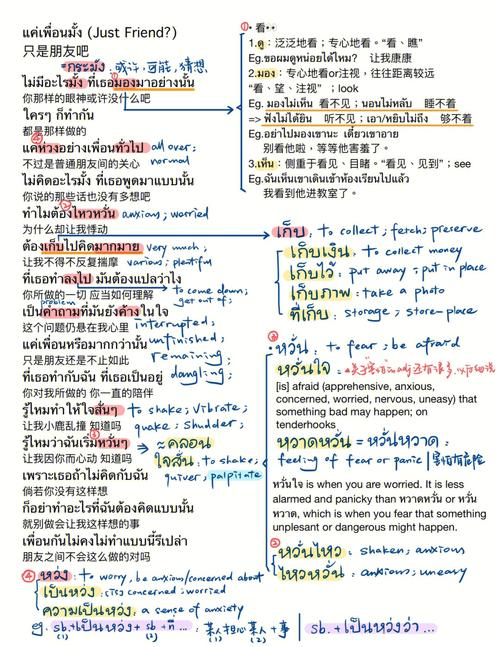 แค่เพื่อนมั้ง (Just Friend?)
只是朋友吧
=กระมัง. 或许,可能,猜想.
ไม่มีอะไรมั้ง ที่เธอมองมาอย่างนั้น
你那样的眼神或许没什么吧
ใครๆ ก็ทำกัน
都是那样做的
④
แค่ห่วงอย่างเพื่อนทั่วไป all over;
不过是普通朋友间的关心 normal
ไม่คิดอะไรมั้ง ที่เธอพูดมาแบบนั้น
你说的那些话也没有多想吧
②
ทำไมต้องไหวหวั่น anxious; worried
为什么却让我悸动
ต้องเก็บไปคิดมากมาย very much;
让我不得不反复揣摩 various; plentiful
ที่เธอทำลงไป มันต้องแปลว่าไง
你所做的一切 应当如何理解 to come down;
get out of;
problem
เป็นคำถามที่มันยังค้างในใจ
这个问题仍悬在我心里 interrupted;
แค่เพื่อนหรือมากกว่านั้น unfinished;
只是朋友还是不止如此 remaining;
ที่เธอทำกับฉัน ที่เธอเป็นอยู่ dangling;
你对我所做的 你一直的陪伴
รู้ไหมทำให้ใจสั่นๆ to shake; vibrate;
让我小鹿乱撞 知道吗 quake; shudder;
③
รู้ไหมว่าฉันเริ่มหวั่นๆ ≈คลอน
让我因你而心动 知道吗 ใจสั่น: to shake;
เพราะเธอถ้าไม่คิดกับฉัน quiver; palpitate
倘若你没有这样想
ก็อย่าทำอะไรที่ฉันต้องคิดแบบนั้น
就别做会让我这样想的事
เพื่อนกันไม่คงไม่ทำแบบนี้รึเปล่า
朋友之间不会这么做的对吗
④ ห่วง: to worry, be anxious/concerned about
เป็นห่วง: (is) concerned; worried
ความเป็นห่วง: a sense of anxiety
eg. sb.+เป็นห่วง+ sb +ที่ ... : 某人担心某人+事 | sb. +เป็นห่วงว่า ...
(1) (2) (1) (2)
①
• 看••
1.ดู: 泛泛地看；专心地看。“看、瞧”
Eg.ขอผมดูหน่อยได้ไหม? 让我康康
2.มอง: 专心地看or注视，往往距离较远
“看、望、注视”；look
Eg. มองไม่เห็น 看不见；นอนไม่หลับ 睡不着
=> ฟังไม่ได้ยิน 听不见；เอา/หยิบไม่ถึง 够不着
Eg.อย่าไปมองเขานะ เดี๋ยวเขาอาย
别看他啦，等等他害羞了。
3.เห็น: 侧重于看见、目睹。“看见、见到”；see
Eg.ฉันเห็นเขาเดินเข้าห้องเรียนไปแล้ว
我看到他进教室了。
เก็บ: to collect; fetch; preserve
เก็บเงิน: to collect money
เก็บไว้: put away; put in place
เก็บภาพ: take a photo
ที่เก็บ: storage; store-place
③
• หวั่น: to fear; be afraid
หวั่นใจ:
[is] afraid (apprehensive, anxious,
concerned, worried, nervous, uneasy) that
something bad may happen; on
tenderhooks
หวาดหวั่น = หวั่นหวาด:
feeling of fear or panic | 害怕有危险
หวั่นใจ is when you are worried. It is less
alarmed and panicky than หวาดหวั่น or หวั่น
หวาด, which is when you fear that something
unplesant or dangerous might happen.
② หวั่นไหว: shaken; anxious
ไหวหวั่น: anxious; uneasy